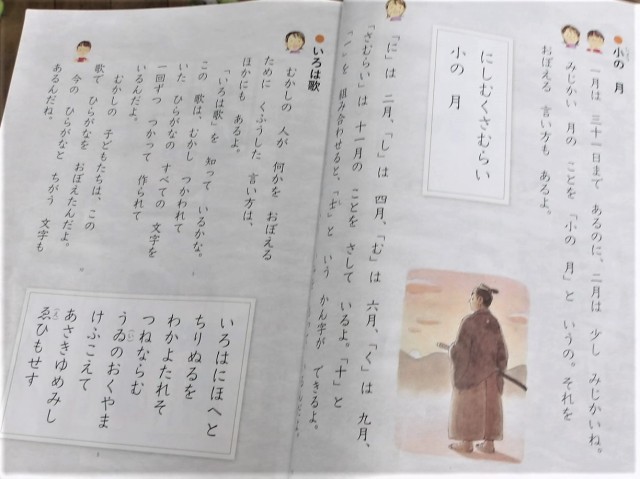 小の 月
一月は 三十一日まで あるのに、二月は 少し みじかいね。
みじかい 月の ことを 「小の 月」と いうの。それを
おぼえる 言い方も あるよ。
にしむくさむらい
小の 月
「に」は 二月、「し」は 四月、「む」は 六月、「く」は 九月、
「さむらい」は 十一月の ことを さして いるよ。「十」と
「一」を 組み合わせると、「士」と いう かん字が できるよ。
いろは歌
むかしの 人が 何かを おぼえる
ために くふうした 言い方は、
ほかにも あるよ。
「いろは歌」を 知って いるかな。
この 歌は、むかし つかわれて
いた ひらがなの すべての 文字を
一回ずつ つかって 作られて
いるんだよ。
むかしの 子どもたちは、この
歌で ひらがなを おぼえたんだよ。
今の ひらがなと ちがう 文字も
あるんだね。
いろはにほへと
ちりぬるを
わかよたれそ
つねならむ
うゐのおくやま
けふこえて
あさきゆめみし
ゑひもせす